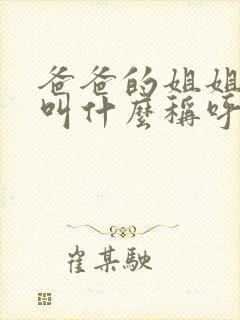 爸爸的姐姐
叫什麼稱呼
崔某駛